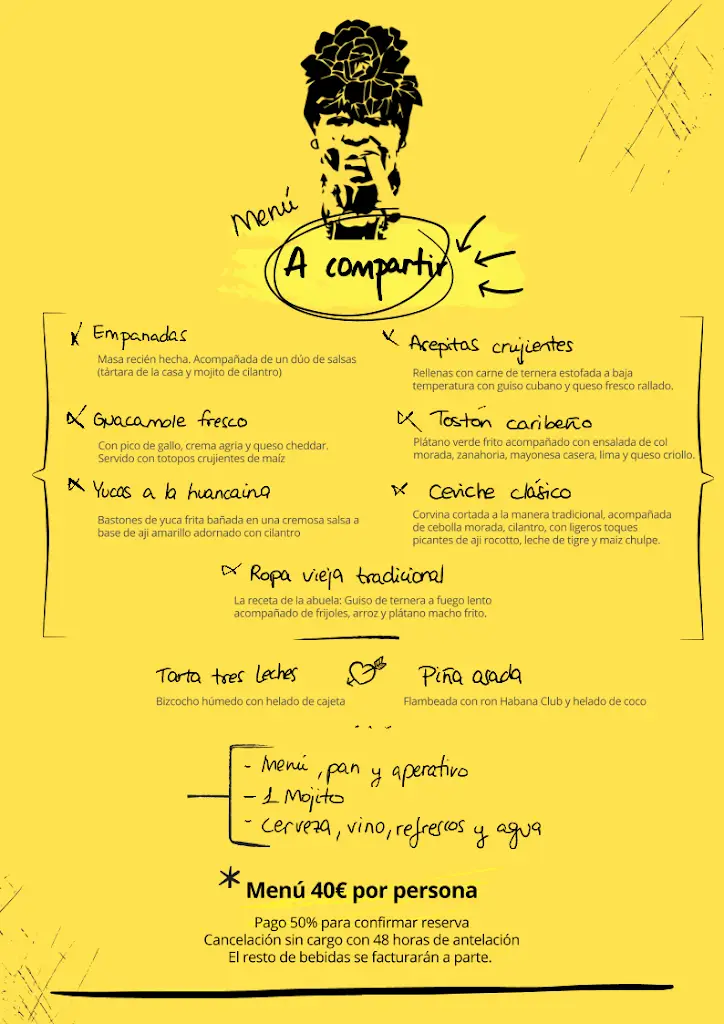 Menú
A compartir
Empanadas
Masa recién hecha. Acompañada de un dúo de salsas
(tártara de la casa y mojito de cilantro)
Arepitas crujientes
Rellenas con carne de ternera estofada a baja
temperatura con guiso cubano y queso fresco rallado.
Guacamole fresco
Con pico de gallo, crema agria y queso cheddar.
Servido con totopos crujientes de maíz
Tostón caribeño
Plátano verde frito acompañado con ensalada de col
morada, zanahoria, mayonesa casera, lima y queso criollo.
Yucas a la huancaina
Bastones de yuca frita bañada en una cremosa salsa a
base de aji amarillo adornado con cilantro
Ceviche clásico
Corvina cortada a la manera tradicional, acompañada
de cebolla morada, cilantro, con ligeros toques
picantes de aji rocotto, leche de tigre y maiz chulpe.
Ropa vieja tradicional
La receta de la abuela: Guiso de ternera a fuego lento
acompañado de frijoles, arroz y plátano macho frito.
Tarta tres leches
Bizcocho húmedo con helado de cajeta
Piña asada
Flambeada con ron Habana Club y helado de coco
- Menú, pan y aperativo
- 1 Mojito
- Cerveza, vino, refrescos y agua
* Menú 40€ por persona
Pago 50% para confirmar reserva
Cancelación sin cargo con 48 horas de antelación
El resto de bebidas se facturarán a parte.